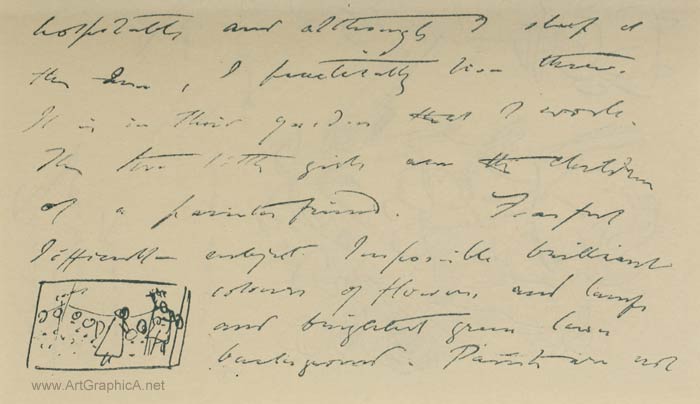 hospitable and although I sleep at
the Inn, I practically live there.
It is in their garden that I work.
The two little girls are the children
of a painter friend. Fearful
difficult subject. Impossible brilliant
colours of flowers, and lamps
and brightest green lawn
background. Paints are not
www.ArtGraphicA.net